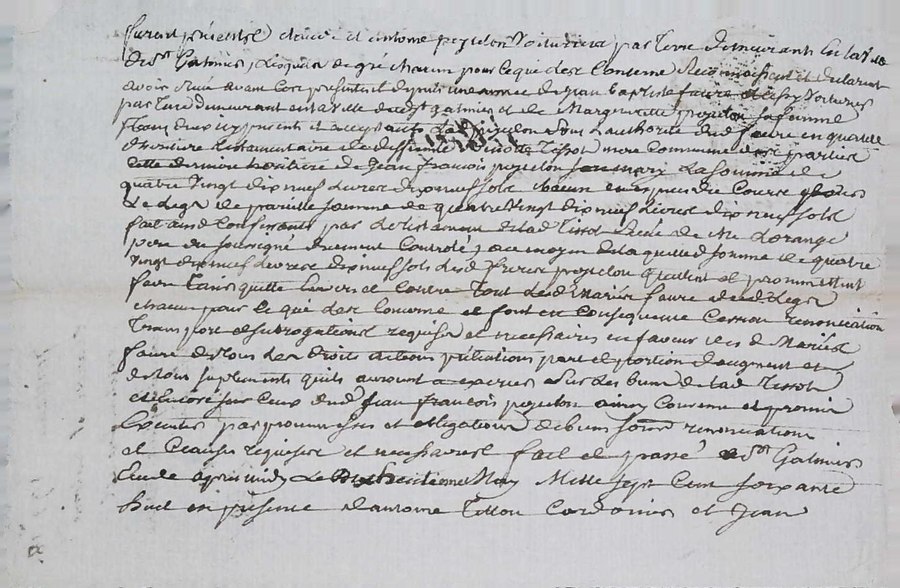 furent présents et antoine pejelon voituriers par terre demeurants en la ville
de st Galmier, lesquels de gré chacun pour ce que les concerne Reconnoissent et declarent
avoir Reçu avant ces presentes depuis une année de Jean baptiste faure voiturier
par terre demeurant en la ville de st galmier et de Marguerite pejelon sa femme
tous deux icy presents et acceptants lad pejelon sous l'authorité dud faure en qualité
d'heritiere testamentaire de deffunte Tissot mere commune des parties
cette derniere heritiere de Jean François pejelon son mary La somme de
quatre vingt dix neuf livres dix neuf sols chacun
Le legs de pareille somme de quatre vingt dix neuf livres dix neuf sols
fait aux d Confessants par le testament de lad Tissot Reçu de Me Lorange
pere du soussigné duement Controlé, au moyen de laquelle somme de quatre
vingt dix neuf livres dix neuf sols lesd freres pejelon quittent et promettent
faire tenir quitte envers et Contre Tout lesd Mariés faure dud legs
chacun pour ce que les concerne et font en Consequence Cession renonciation
Transport et subrogations requises et necessaires en faveur des d Mariés
faure de tous les droits actions pretentions part et portion d'augment et
de tous suplements quils auroient a exercer sur les biens de lad Tissot
et encore sur Ceux dud Jean François pejelon ainsi Convenu et promis
executer par promesses et obligations de biens renonciations
et Clauses requises et necessaires fait et passé a st Galmier
Etude apres midy Le May Mille sept Cent soixante
huit en presence d'antoine Cordonnier et Jean